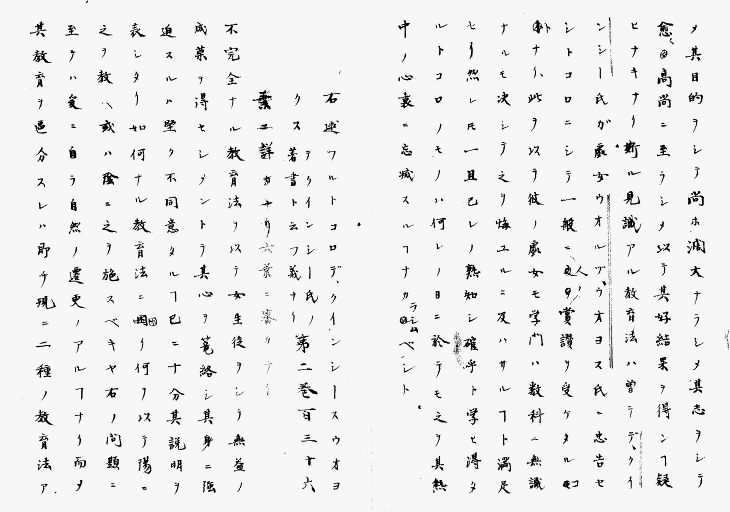 メ其目的ヲシテ尚ホ濶大ナラシメ其志ヲシテ
愈高尚ニ至ラシメ以テ其好結果ヲ得ンヿ疑
ヒナキナリ斯ル見識アル教育法ハ曽テデ、クイ
ンシー氏ガ處女ウオルヅ、ウオヨス氏ニ忠告セ
シトコロニシテ一般ニ人ノ賞讃ヲ受ケタル
ナリ、此ヲ以テ彼ノ處女モ学門ハ数科ニ無識
ナルモ決シテ之ヲ悔ユルニ及ハサルヿト満足
セリ然レ𪜈一旦已レノ熟知シ確乎ト学ヒ得タ
ルトコロノモノハ何レノ日ニ於テモ之ヲ其熱
中ノ心裏ニ忘滅スルヿナカラシムベシト
右述フルトコロデ、クインシースウオヨ
ヲクインシー氏ノ第二巻百三十六
クス著書ト云フ義ナリ
葉ニ詳カナリ
不完全ナル教育法ヲ以テ女生徒ヲシテ無益ノ
成菓ヲ得セシメントテ其心ヲ篭絡シ其身ニ強
迫スルハ堅ク不同意タルヿ已ニ十分其説明ヲ
表シタリ如何ナル教育法ニ因リ何ヲ以テ陽ニ
之ヲ教ヘ或ハ陰ニ之ヲ施スベキヤ右ノ問題ニ
至テハ爰ニ自ラ自然ノ遷更ノアルヿナリ而メ
其教育ヲ區分スレハ即チ現ニ二種ノ教育法ア